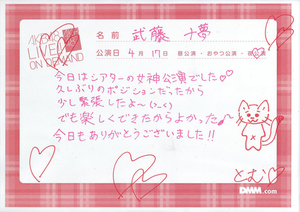 AKB48
LIVE!!
ON DEMAND
名前 武藤 十夢
公演日 4月17日 昼公演・おやつ公演・夜公演
今日はシアターの女神公演でした♡♡
久しぶりのポジションだったから
少し緊張したよ〜(>_<)
でも楽しくできたからよかった♪
今日もありがとうございました!!
とむ♡
DMM.com